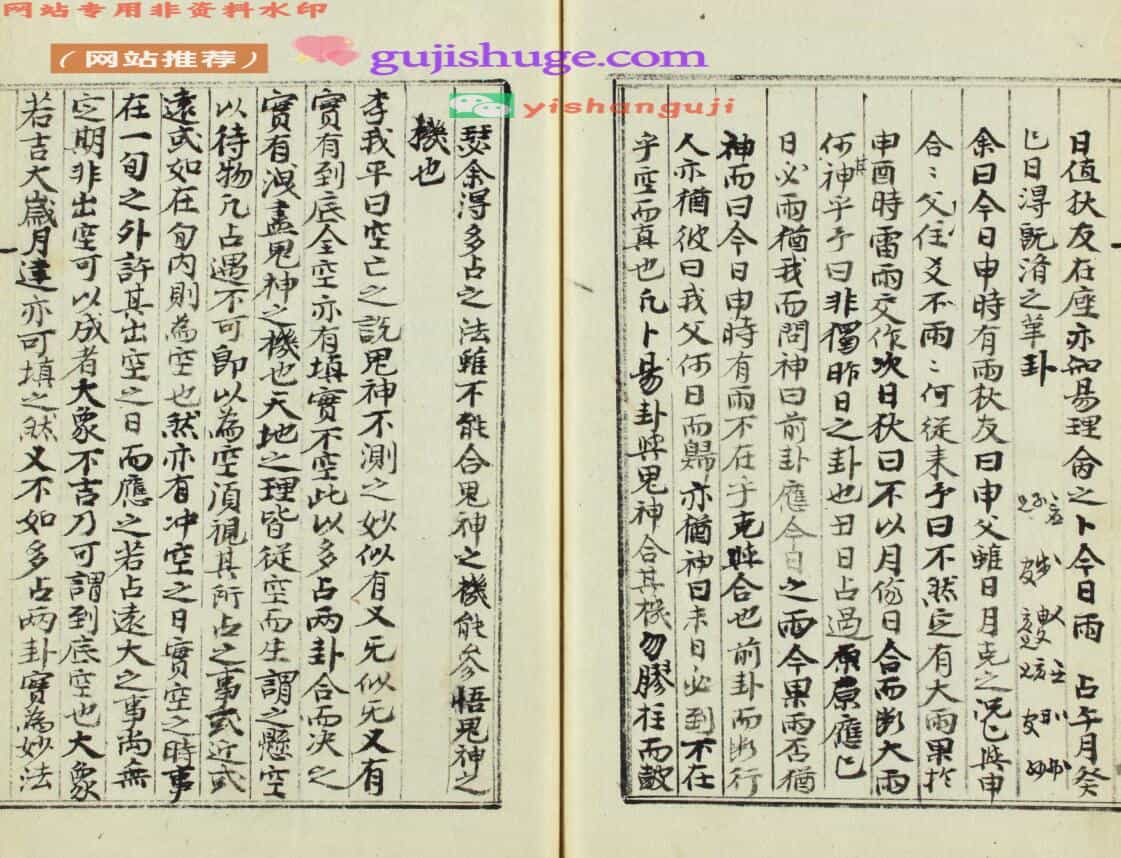 网站专用非资料水印
（网站推荐）
gujishuge.com
yishanguji
日值狄友在座亦知易理会之卜今日雨 占午月癸
巳日得既濟之革卦
余曰今日申時有雨狄友曰申父雖日月克之况巳與申
合合父住父爻不雨雨何從来予曰不然定有大雨果於
申酉時雷雨交作次日狄曰不以月份日合而断大雨
何其神乎予曰非獨昨日之卦也丑日占過原原應巳
日必雨猶我而問神曰前卦應今日之雨今果雨否猶
神而曰今日申時有雨不在乎克與合也前卦而断行
人亦猶彼曰我父何日而歸亦猶神曰未日必到不在
乎空而真也凡卜易卦與鬼神合其機勿膠柱而鼓
瑟余得多占之法雖不能合鬼神之機能參悟鬼神之
機也
李我平曰空亡之説鬼神不測之妙似有又无似无又有
實有到底全空亦有填實不空此以多占两卦合而决之
實有洩盡鬼神之機也天地之理皆從空而生謂之懸空
以待物凡占遇不可即以為空湏視其所占之事或近或
遠或如在旬内則為空也然亦有冲空之日實空之時事
在一旬之外許其出空之日而應之若占遠大之事尚無
定期非出空可以成者大象不吉刀可謂到底空也大象
若吉大歲月建亦可填之然又不如多占两卦實為妙法